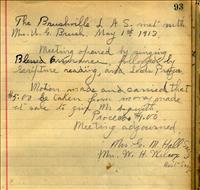 93
The Brushville L A S. met with
Mrs. V. G. Brush. May 1st 1913.
Meeting opened by singing
Blessed Assurance, followed by
scripture reading, and Lords Prayer.
Motion made and carried that
$5.00 be taken from money made
at sale to give Mr.
Proceeds $1.00
Meeting adjourned,
Mrs. G. M. Hall
Mrs. W. H.